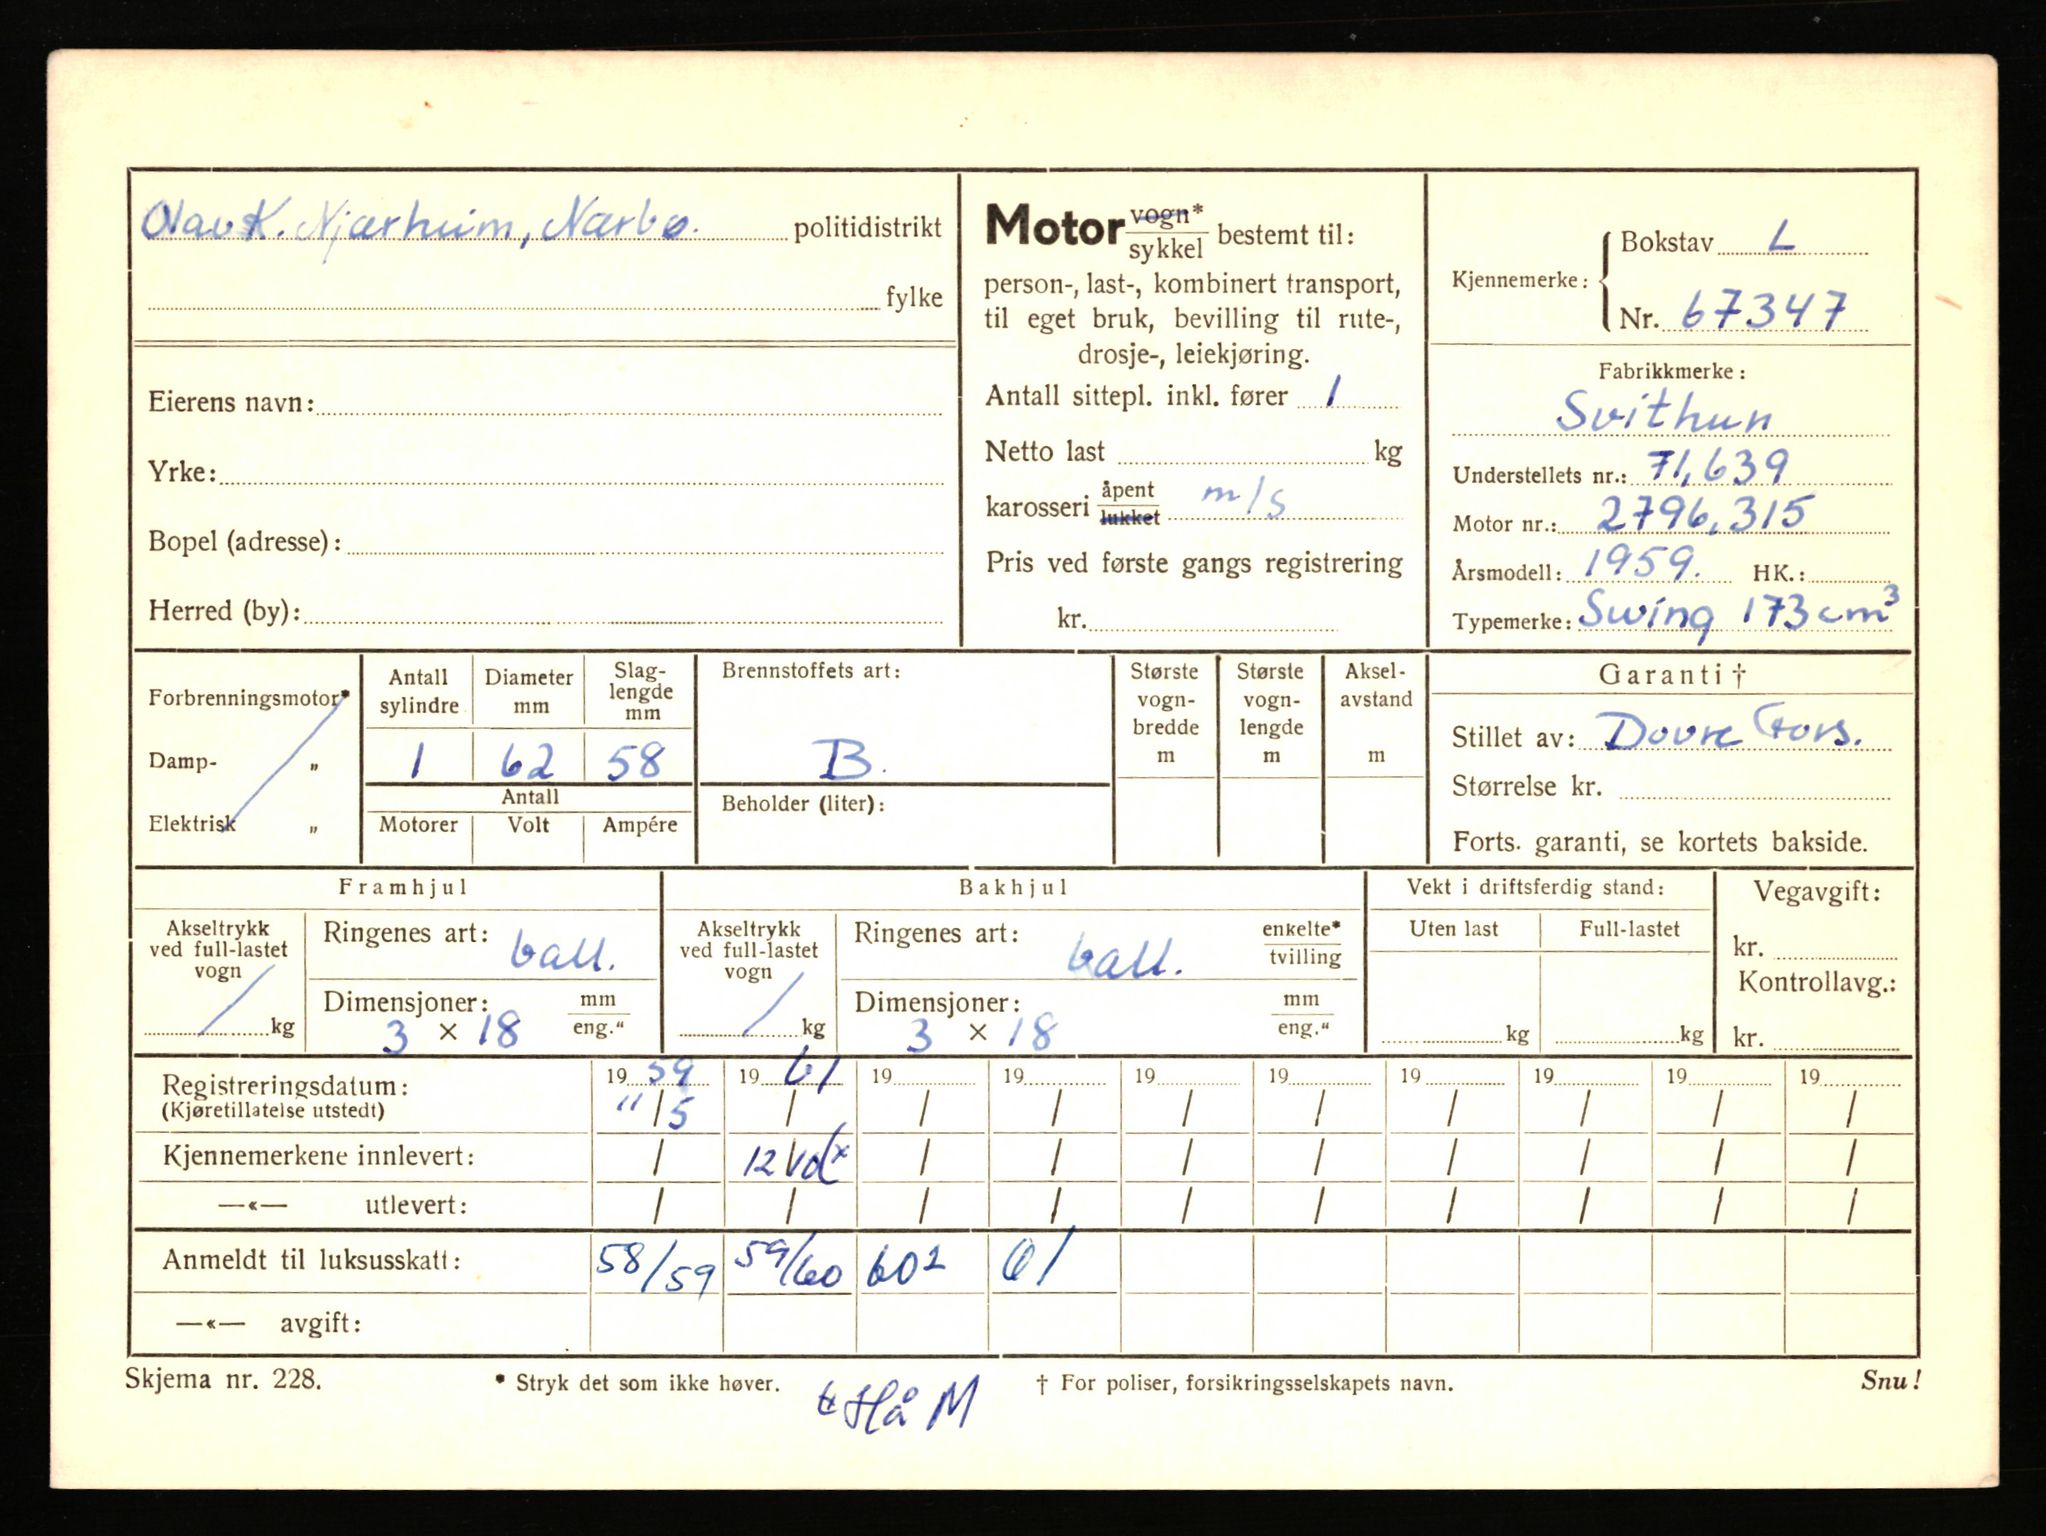 Olav K. Njærheim, Nærbø. politidistrikt
fylke
Eierens navn:
Yrke:
Bopel (adresse):
Herred (by):
Motor vogn* / sykkel bestemt til:
person-, last-, kombinert transport,
til eget bruk, bevilling til rute-,
drosje-, leiekjøring.
Antall sittepl. inkl. fører 1
Netto last kg
karosseri åpent / lukket m/s
Pris ved første gangs registrering
kr.
Kjennemerke: Bokstav L
Nr. 67347
Fabrikkmerke:
Svithun
Understellets nr.: 71,639
Motor nr.: 2796,315
Årsmodell: 1959. HK.:
Typemerke: Swing 173 cm³
Forbrenningsmotor*
Damp- „
Elektrisk „
Antall sylindre
Diameter mm
Slag-lengde mm
1 62 58
Antall
Motorer Volt Ampére
Brennstoffets art:
B.
Beholder (liter):
Største vogn-bredde m
Største vogn-lengde m
Aksel-avstand m
Garanti †
Stillet av: Dovre Fors.
Størrelse kr.
Forts. garanti, se kortets bakside.
Framhjul
Akseltrykk ved full-lastet vogn kg
Ringenes art: ball.
Dimensjoner: mm / eng."
3 × 18
Bakhjul
Akseltrykk ved full-lastet vogn kg
Ringenes art: ball. enkelte* / tvilling
Dimensjoner: mm / eng."
3 × 18
Vekt i driftsferdig stand:
Uten last Full-lastet
kg kg
Vegavgift:
kr.
Kontrollavg.:
kr.
Registreringsdatum: 19 59 19 61 19 19 19 19 19 19 19 19
(Kjøretillatelse utstedt) " / 5 / / / / / / / / /
Kjennemerkene innlevert: / 12 / / / / / / / / /
—«— utlevert: / / / / / / / / / /
Anmeldt til luksusskatt: 58/59 59/60 60² 61
—«— avgift:
Skjema nr. 228. * Stryk det som ikke høver. † For poliser, forsikringsselskapets navn. Snu!
Hå M